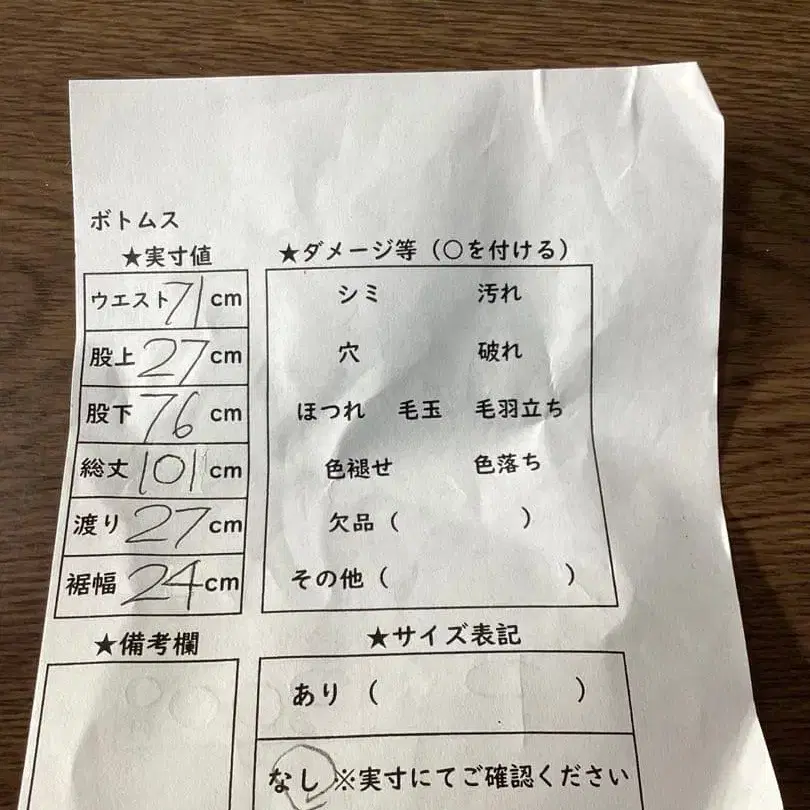 ボトムス
★実寸値
ウエスト 71 cm
股上 27 cm
股下 76 cm
総丈 101 cm
渡り 27 cm
裾幅 24 cm
★ダメージ等（○を付ける）
シミ 汚れ
穴 破れ
ほつれ 毛玉 毛羽立ち
色褪せ 色落ち
欠品（ ）
その他（ ）
★備考欄
★サイズ表記
あり（ ）
なし ※実寸にてご確認ください